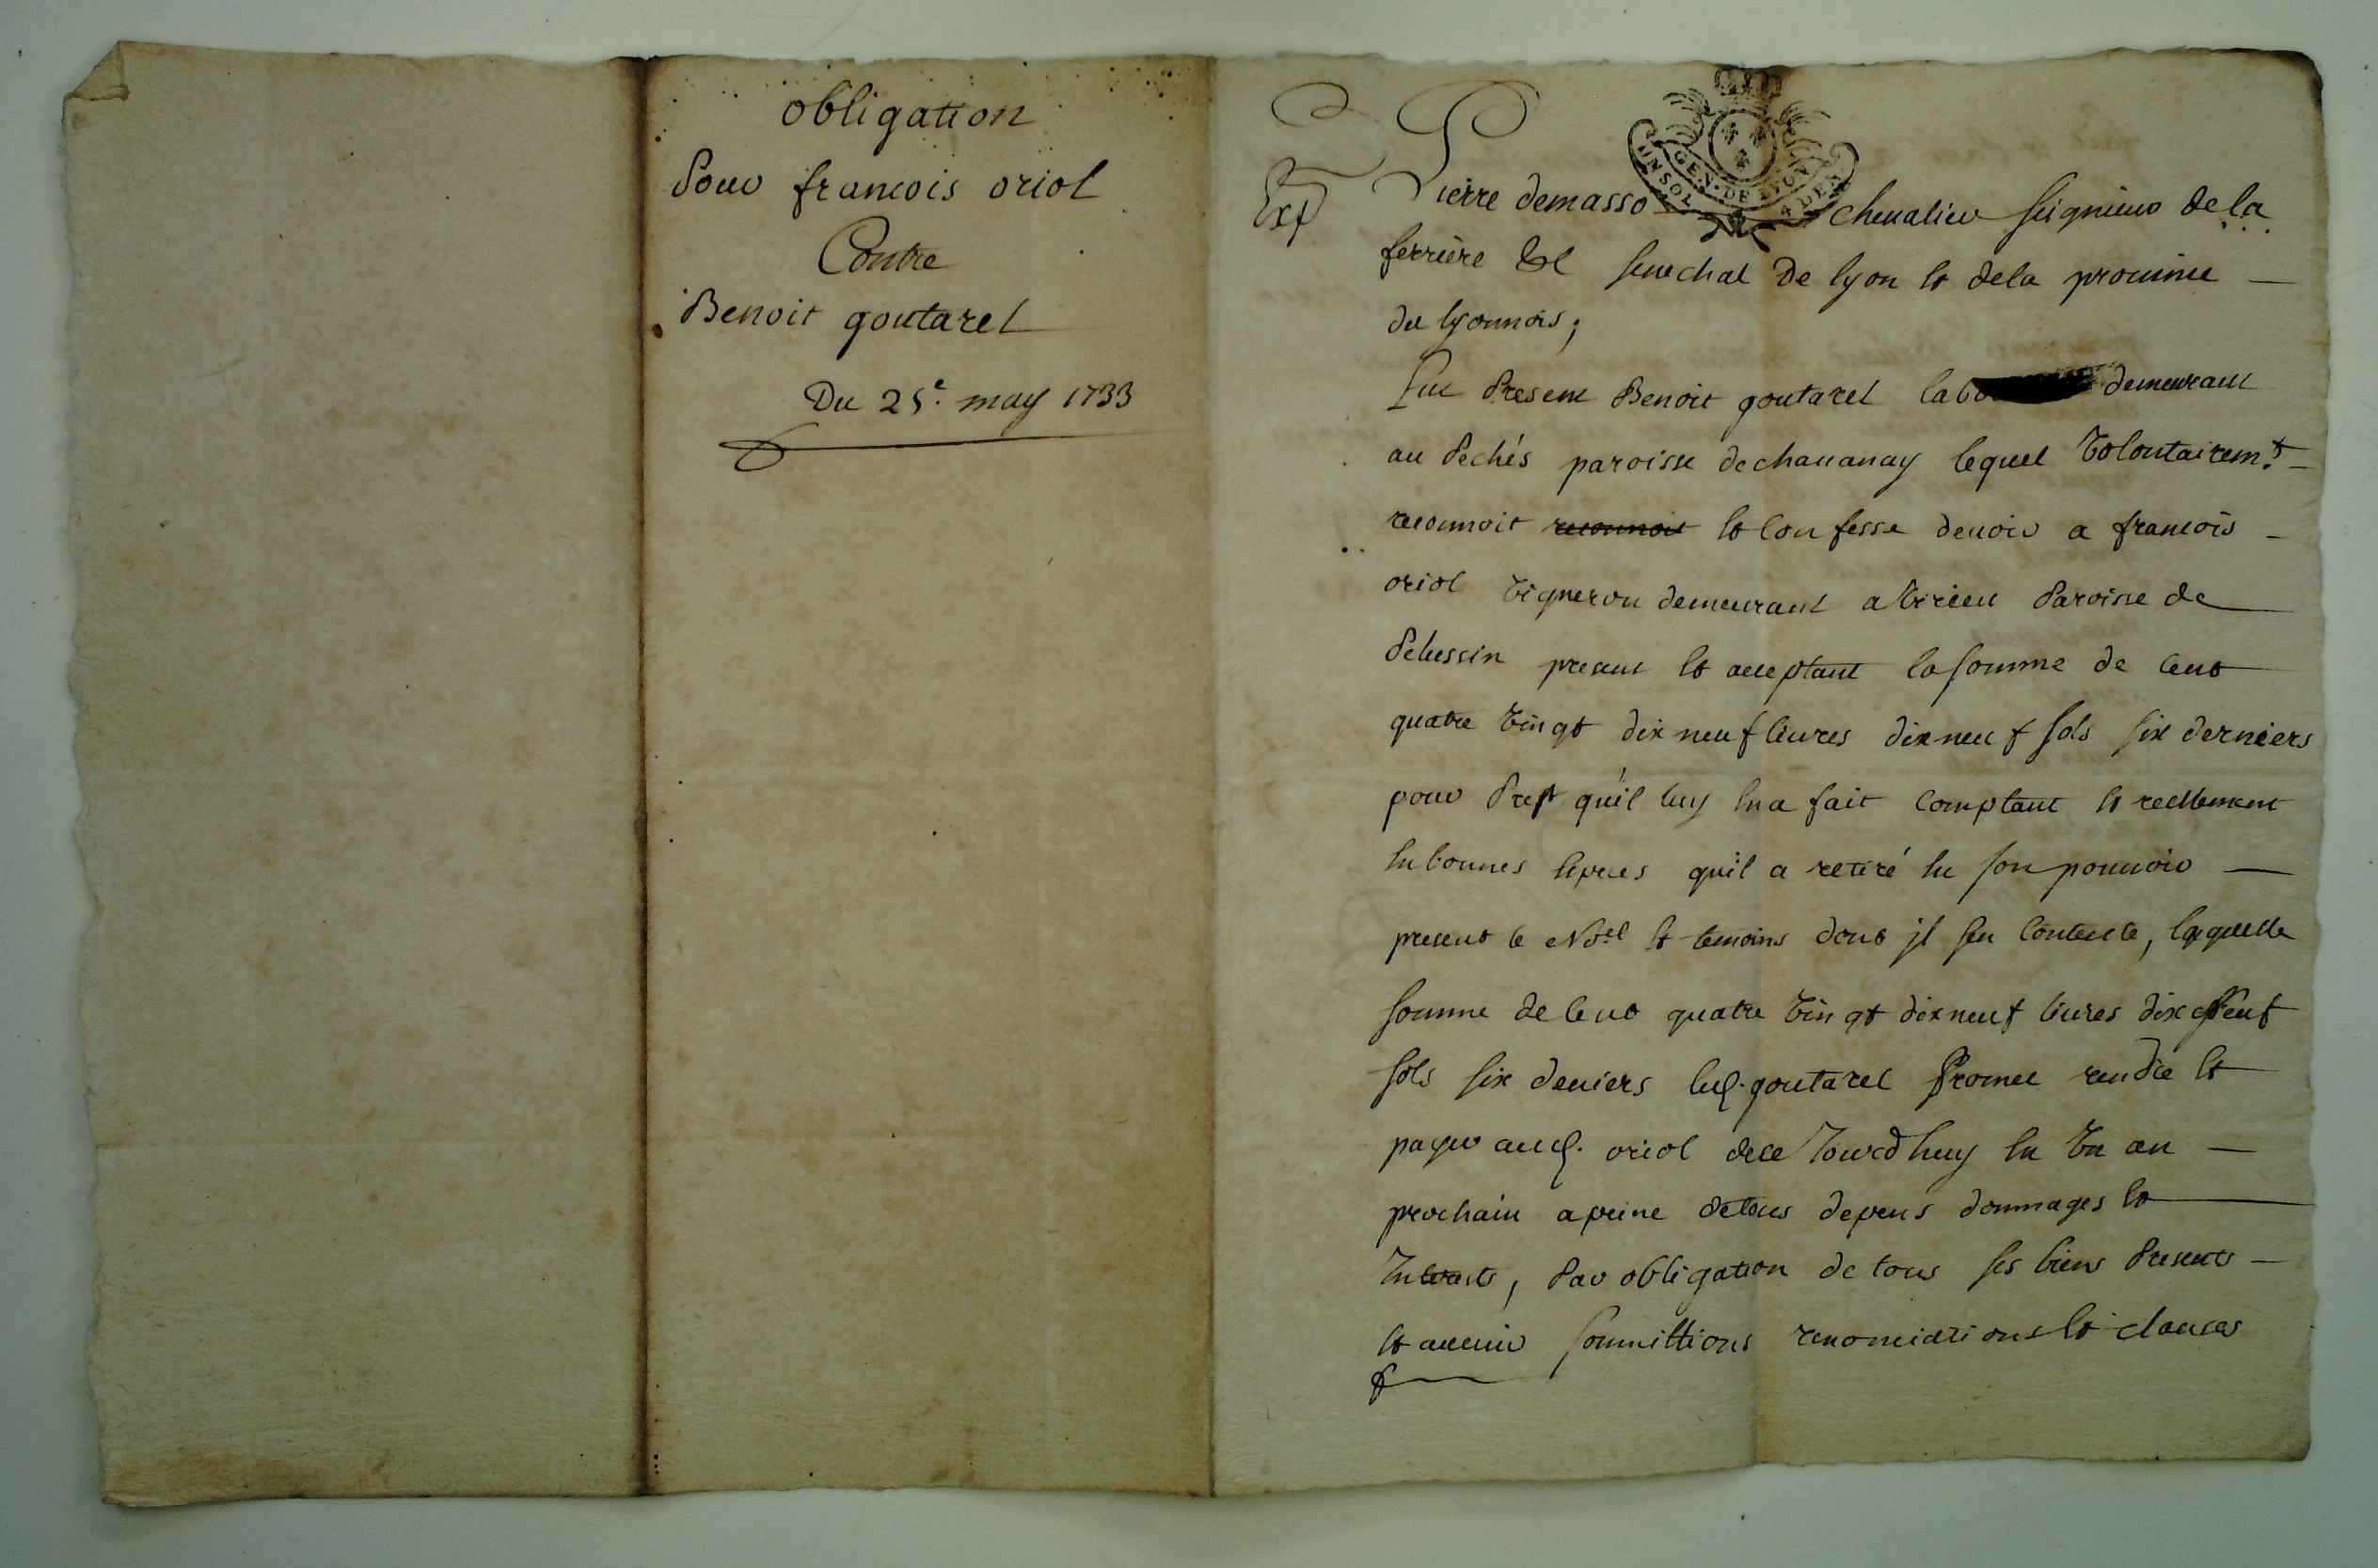 obligation
Pour francois oriol
Contre
Benoit goutarel
Du 25e. may 1733
GEN. DE LYON
UN SOL 4 DEN
Exp
Pierre demasso chevalier seigneur de la
ferriere &c senechal de lyon et de la province
du lyonnois;
fut Present Benoit goutarel demeurant
au Pechés paroisse de chavanay lequel volontairemt.
reconnoit reconnoit et confesse devoir a francois
oriol vigneron demeurant a virieu Paroisse de
Pelussin present et acceptant la somme de cent
quatre vingt dix neuf livres dix neuf sols six derniers
pour Prest qu'il luy en a fait comptant et reellement
en bonnes especes quil a retiré en son pouvoir
present le No.re et temoins dont jl sen contente, laquelle
somme de cent quatre vingt dix neuf livres dix neuf
sols six deniers led. goutarel Promet rendre et
payer aud. oriol de ce Jourdhuy en un an
prochain a peine de tous depens dommages et
Interests, Par obligation de tous ses biens Presents
et avenir soumittions renonciations et clauses